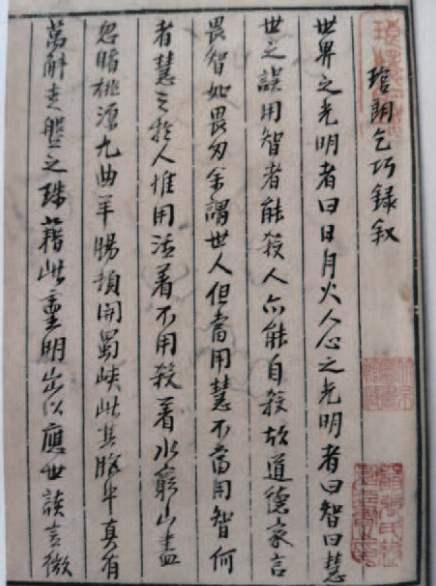 琯朗乞巧録敘
世界之光明者曰日月火人心之光明者曰智曰慧
世之誤用智者能殺人亦能自殺故道德家言
畏智如畏刃余謂世人但當用慧不當用智何
者慧之於人推用活着不用殺着水窮山盡
忽睹桃源九曲羊腸頓開蜀峽此其胸中真有
萬斛走盤之珠藉此靈明出以應世談言微